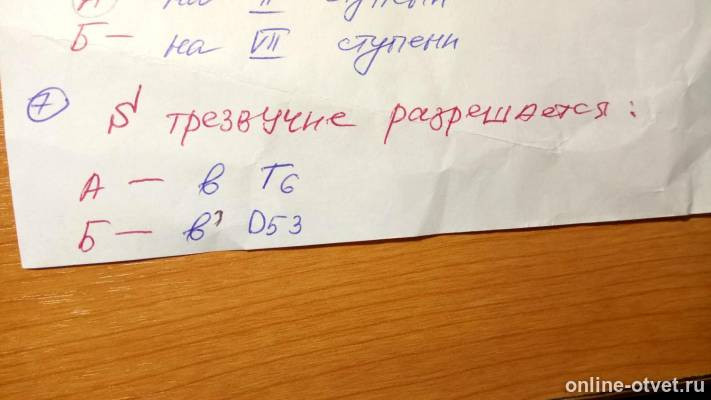 А — на II ступени
Б — на VII ступени
7 S трезвучие разрешается:
А — в T6
Б — в D53
online-otvet.ru